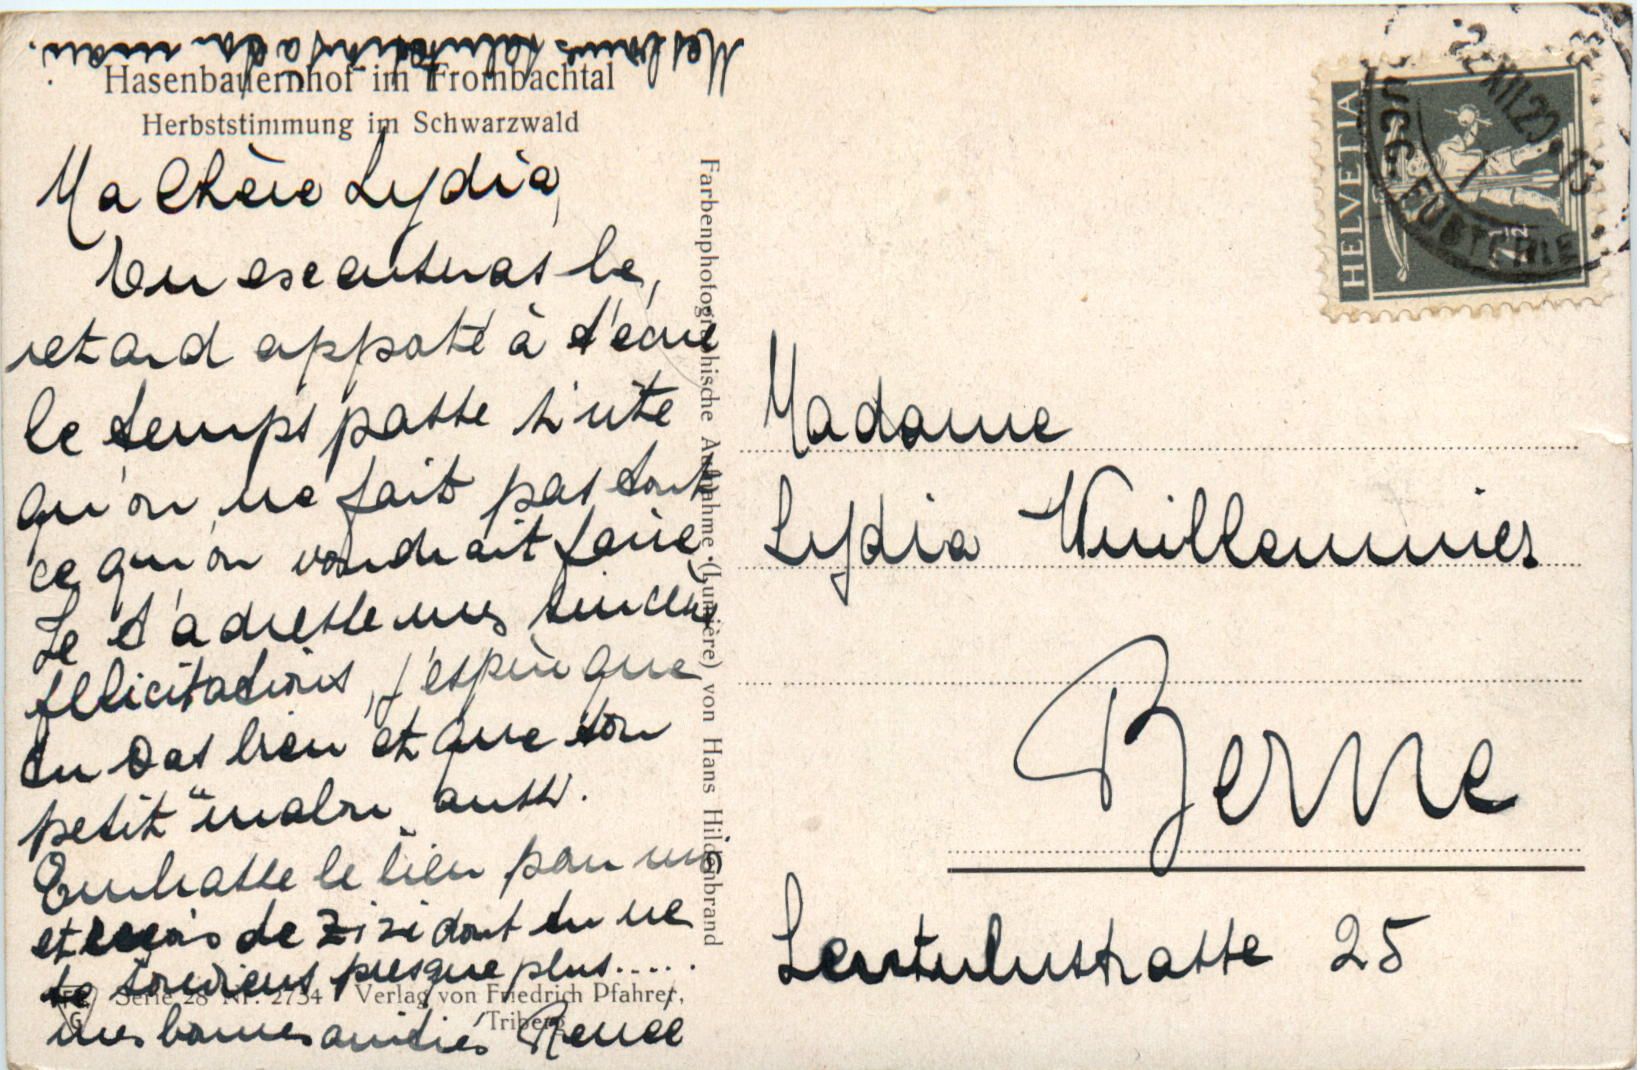 Mes bonnes salutations à ton mari.
Hasenbauernhof im Frombachtal
Herbststimmung im Schwarzwald
Ma Chère Lydia,
Tu excuseras le,
retard apporté à t'écrire
le temps passe si vite
qu'on ne fait pas tout
ce qu'on voudrait faire,
Je t'adresse mes sincères
félicitations, j'espère que
tu vas bien et que ton
petit aussi.
Embrasse le bien pour moi
et reçois de Zizi dont tu ne
te souviens presque plus.....
mes bonnes amitiés Renée
Serie 28 Nr. 2734 Verlag von Friedrich Pfahrer,
Triberg
Farbenphotographische Aufnahme (Lumière) von Hans Hildenbrand
HELVETIA
7½
FUSTERIE
Madame
Lydia Vuilleumier
Berne
Lentulustrasse 25